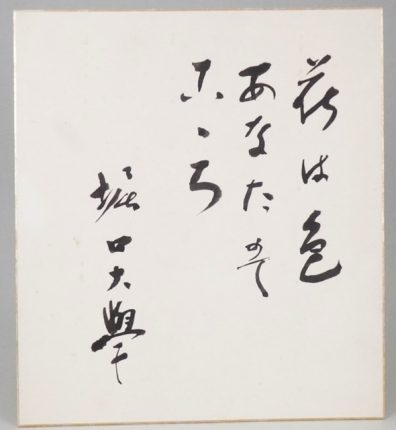 花は色
あなたは
こゝろ
堀口大學